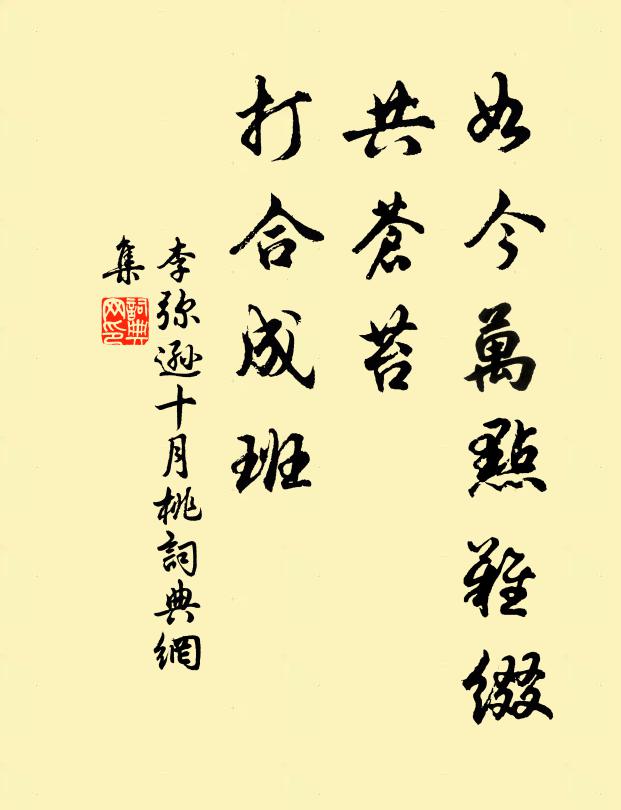 如今萬點難綴
共蒼苔
打合成班
李弥遜十月桃詞典網
集
詞典网印